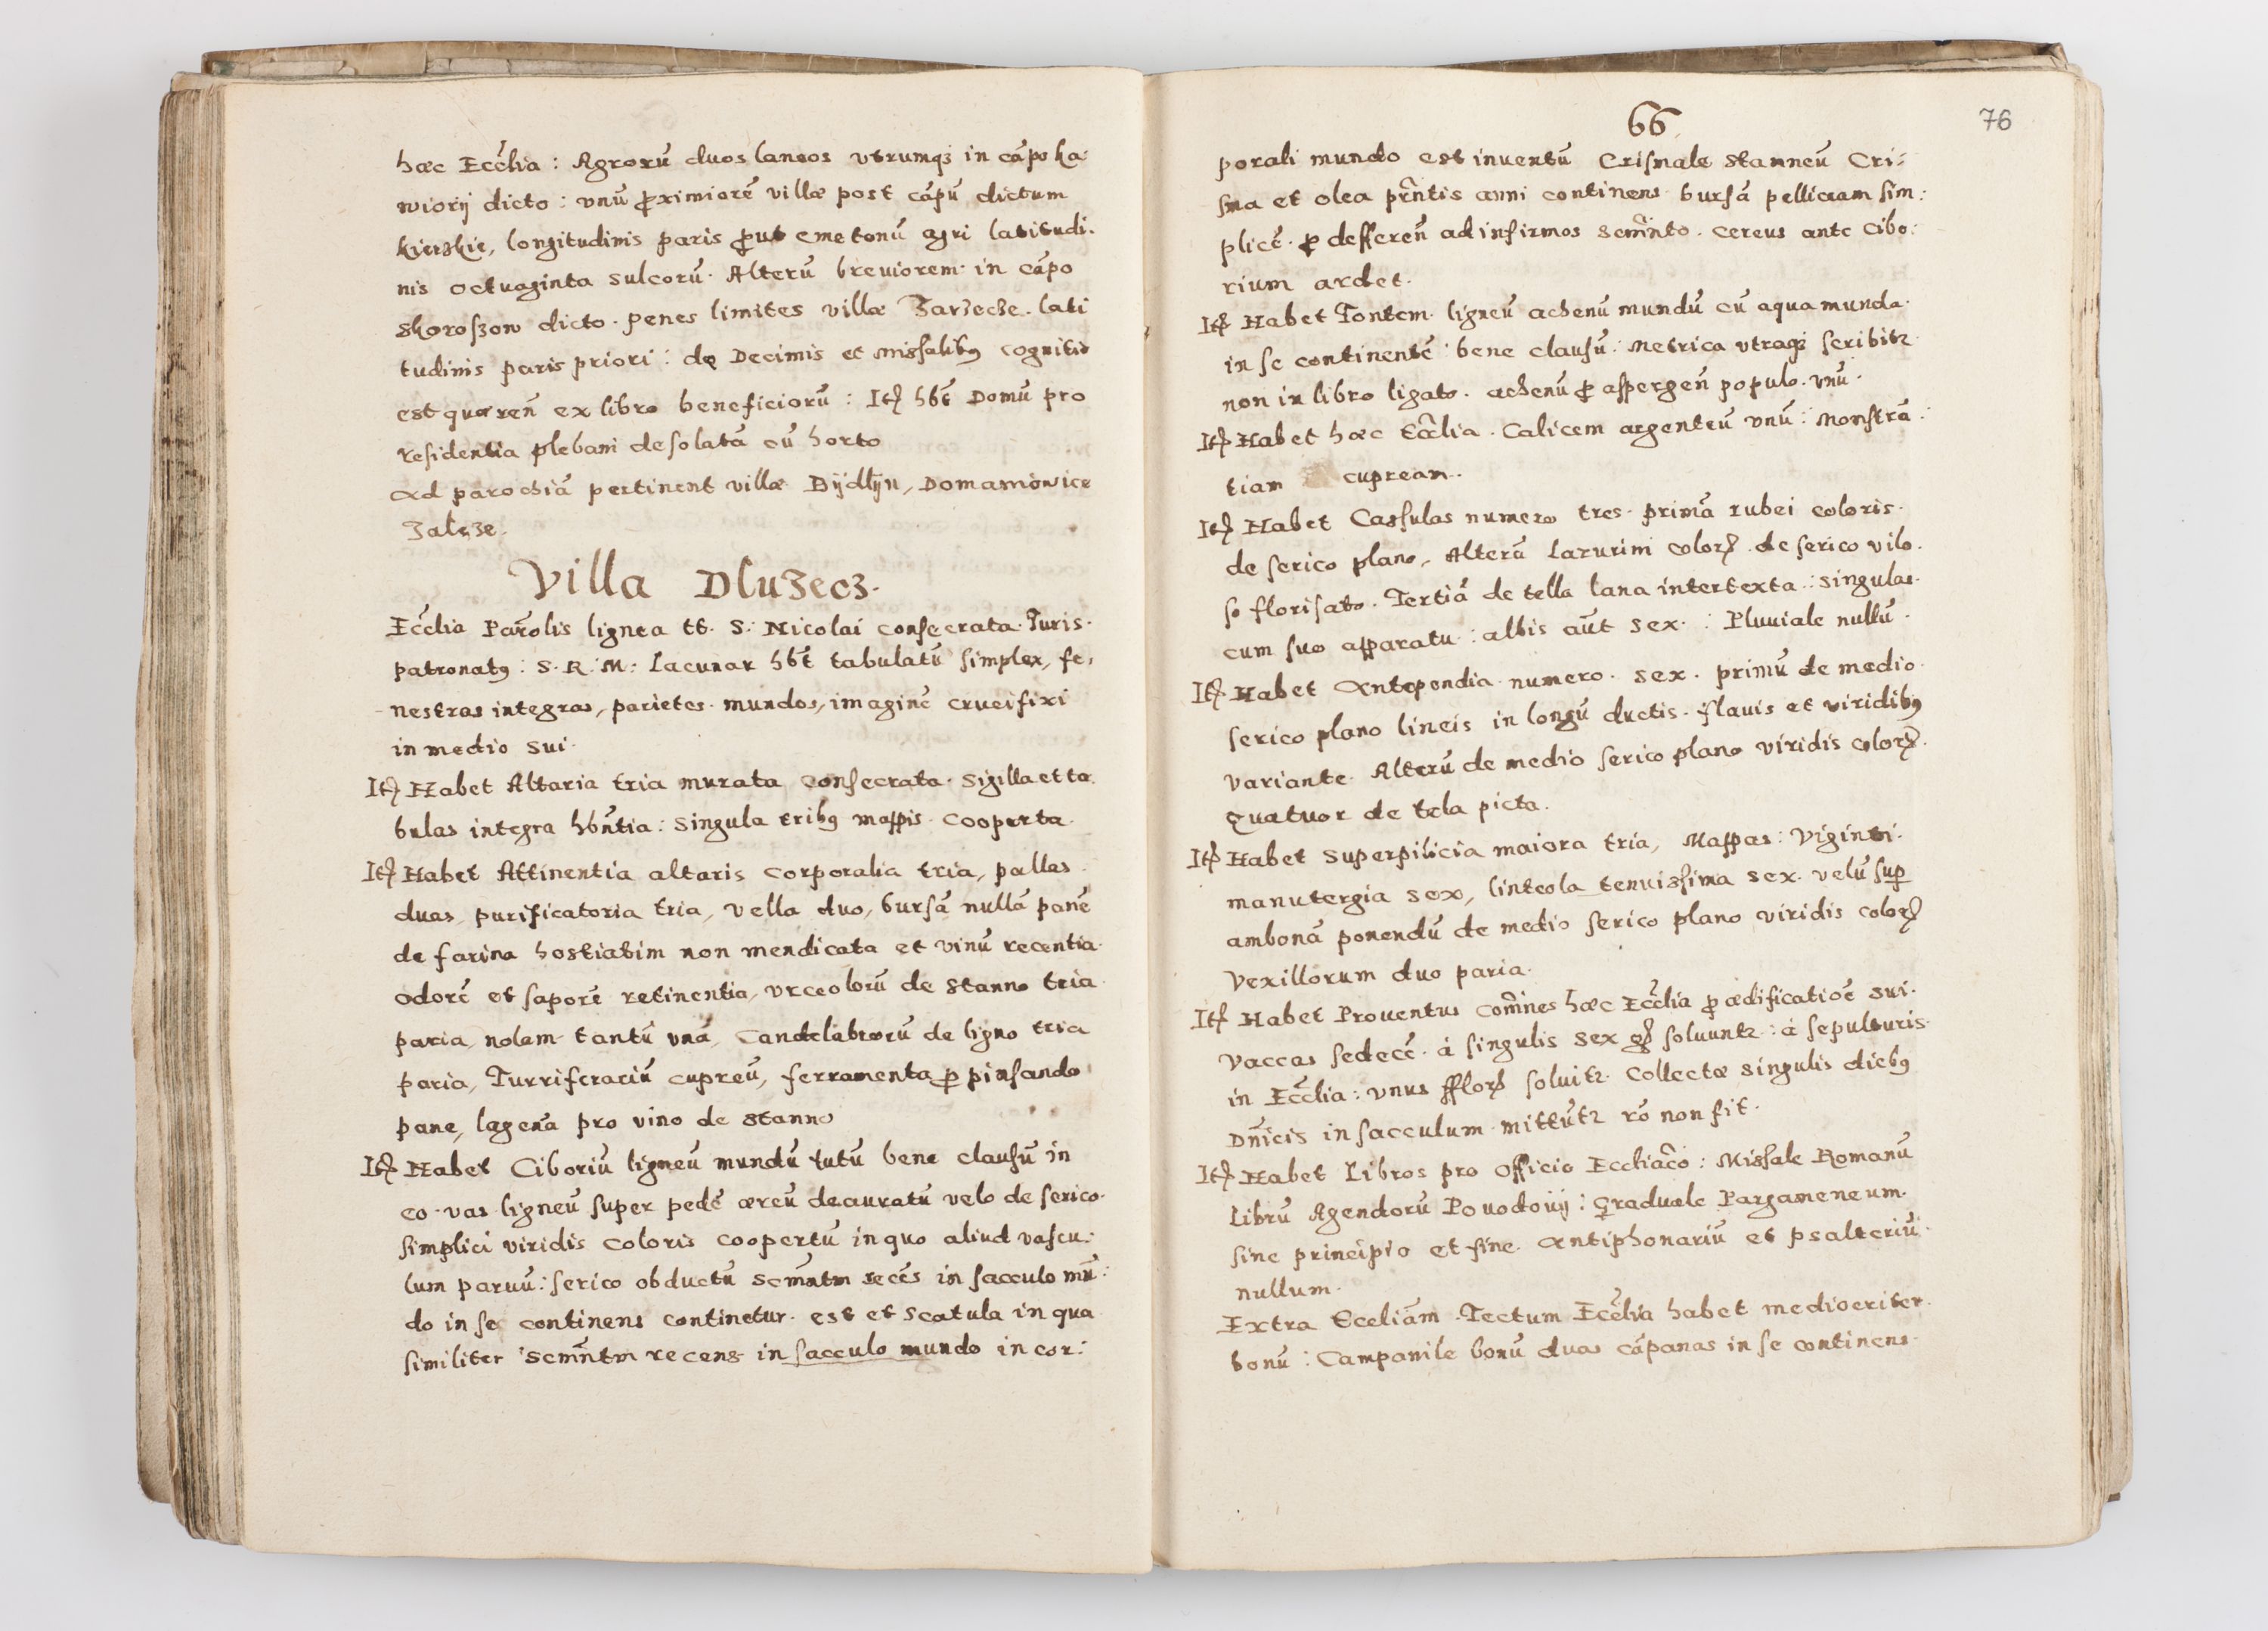 hæc Eccĺia : Agrorū duos laneos vtrumqꝫ in cāpo ka:
wiorÿ dicto : vnū ꝓximiorē villæ post cāpū dictum
kierzkie, longitudinis paris ꝓut cmetonū agri latitudi.
nis octuaginta sulcorū. Alterū breuiorem in cāpo
skoroszow dicto. penes limites villæ Jarzecze. lati
tudinis paris priori : de Decimis et missalibꝰ cognitio
est quæreñ ex libro beneficiorū : Itꝫ hb̄t Domū pro
residentia plebani desolatā cū horto
ad parochiā pertinent villæ Bÿdlÿn, Domaniowice
Zalęze.
Villa Dluzecz.
Eccĺia Paro̅lis lignea tt. S: Nicolai consecrata. Juris.
patronatꝰ : S. R. M: Lacunar hb̄t tabulatū simplex, fe,
nestras integras, parietes. mundos, imaginē crucifixi
in medio sui.
Itꝫ Habet Altaria tria murata consecrata. sigilla et ta.
bulas integra hb̄ntia : singula tribꝰ mappis. cooperta.
Itꝫ Habet Attinentia altaris corporalia tria, pallas.
duas, purificatoria tria, vella duo, bursā nullā panē
de farina hostiatim non mendicata et vinū recentia.
odorē et saporē retinentia, vrceolorū de stanno tria
paria, nolam tantū vnā, candelabrorū de ligno tria
paria, Turriferariū cupreū, ferramenta ꝓ pinsando
pane, lagenā pro vino de stanno
Itꝫ Habet Ciboriū ligneū mundū tutū bene clausū in
eo. vas ligneū super pedē æreū deauratū velo de serico.
simplici viridis coloris coopertū in quo aliud vascu:
lum paruū : serico obductū scm̄ntm recēs in sacculo mū:
do in se continens continetur. est et scatula in qua
similiter scm̄ntm recens in sacculo mundo in cor:
66
76
porali mundo est inuentū Crismale stanneū Cri:
sma et olea prn̄tis anni continens. bursā pelliceam sim:
plicē. ꝓ defferen̄ ad infirmos scm̄nto. cereus ante cibo:
rium ardet.
Itꝫ Habet Fontem ligneū achenū mundū cū aqua munda.
in se continentē bene clausū. Metrica vtraqꝫ scribitr
non in libro ligato. achenū ꝓ aspergen̄ populo. vnū.
Itꝫ Habet hæc Eccĺia. Calicem argenteū vnū : Monstrā:
tiam cupream.
Itꝫ Habet Cassulas numero tres. primā rubei coloris.
de serico plano, Alterā Lazurini colorꝫ. de serico vilo.
so florisato. Tertiā de tella lana intertexta : singulas.
cum suo apparatu : albis aūt sex. : Pluuiale nullū.
Itꝫ Habet Antependia numero. sex. primū de medio.
serico plano lineis in longū ductis. flauis et viridibꝰ
variante. Alterū de medio serico plano viridis colorꝫ.
Quatuor de tela picta.
Itꝫ Habet superpilicia maiora tria, Mappas : Viginti.
manutergia sex, linteola tenuissima sex. velū suꝑ
ambonā ponendū de medio serico plano viridis colorꝫ
Vexillorum duo paria.
Itꝫ Habet Prouentus com̄nes hæc Eccĺia ꝓ ædificatioē sui.
Vaccas sedecē. à singulis sex gꝫ soluuntr : à sepulturis.
in Eccĺia : vnus fflorꝫ soluitr. Collectæ singulis diebꝰ
Dn̄icis in sacculum mittūtr rō non fit.
Itꝫ Habet Libros pro Officio Eccliac̄o : Missale Romanū
Librū Agendorū Powodowÿ : Graduale Pargameneum.
sine principio et fine. Antiphonariū et psalteriū.
nullum.
Extra Eccliām. Tectum Eccĺia habet mediocriter.
bonū : Campanile bonū duas cāpanas in se continens.